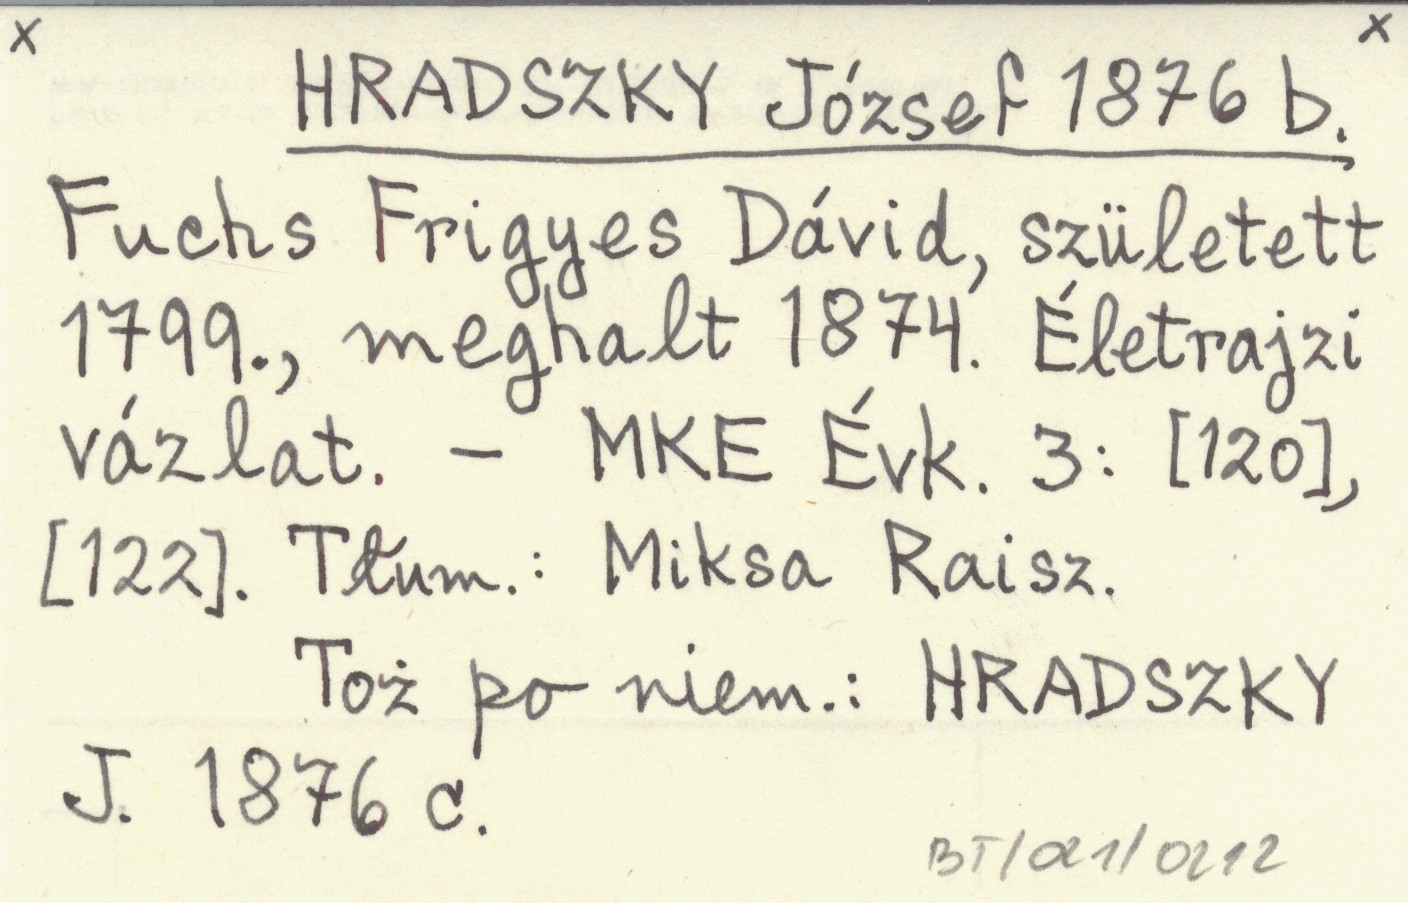 x x
HRADSZKY József 1876 b.
Fuchs Frigyes Dávid, született
1799., meghalt 1874. Életrajzi
vázlat. – MKE Évk. 3: [120],
[122]. Tłum.: Miksa Raisz.
Toż po niem.: HRADSZKY
J. 1876 c.
BT/021/0212